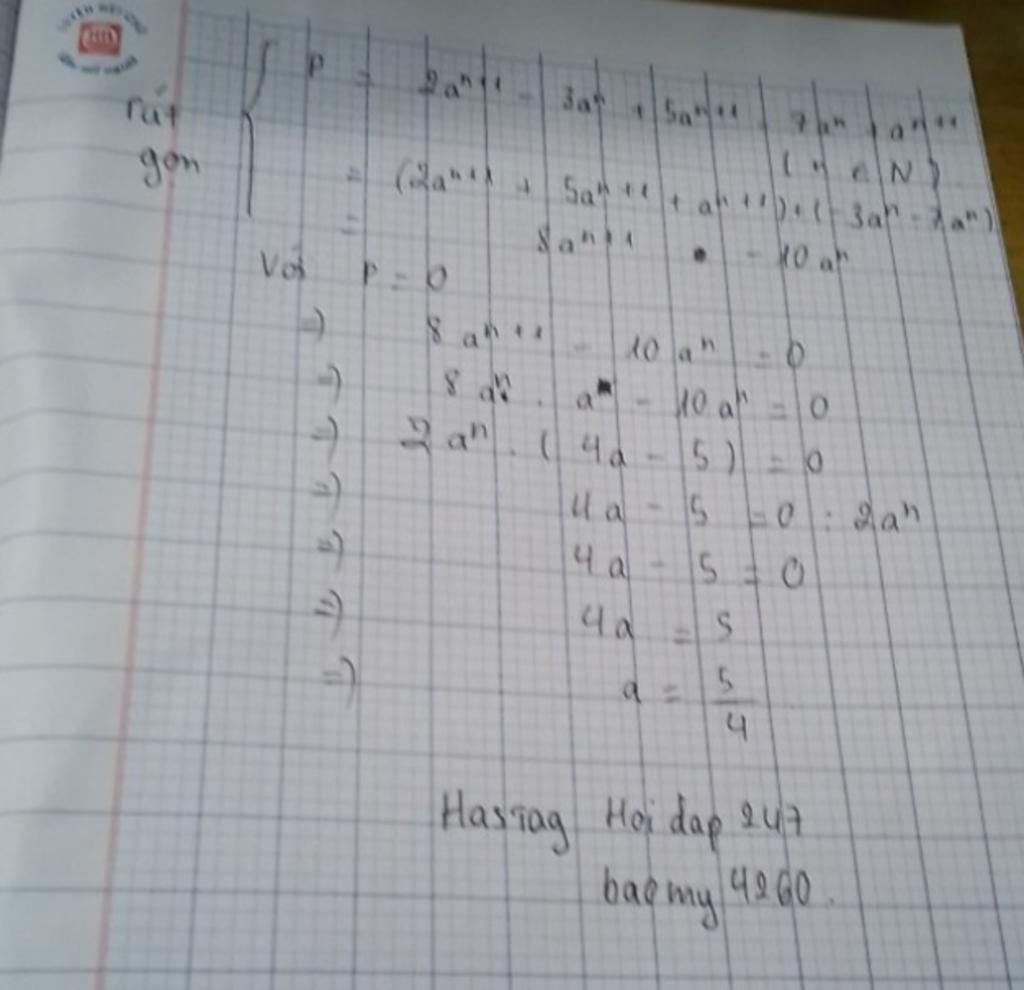 rút gọn
P = 2aⁿ⁺¹ - 3aⁿ + 5aⁿ⁺¹ - 7aⁿ + aⁿ⁺¹
(n ∈ N)
= (2aⁿ⁺¹ + 5aⁿ⁺¹ + aⁿ⁺¹) + (-3aⁿ - 7aⁿ)
= 8aⁿ⁺¹ - 10aⁿ
Với P = 0
=> 8aⁿ⁺¹ - 10aⁿ = 0
=> 8aⁿ . a - 10aⁿ = 0
=> 2aⁿ . (4a - 5) = 0
=> 4a - 5 = 0 : 2aⁿ
=> 4a - 5 = 0
=> 4a = 5
=> a = 5/4
Hastag Hoi dap 247
baomy 4260.